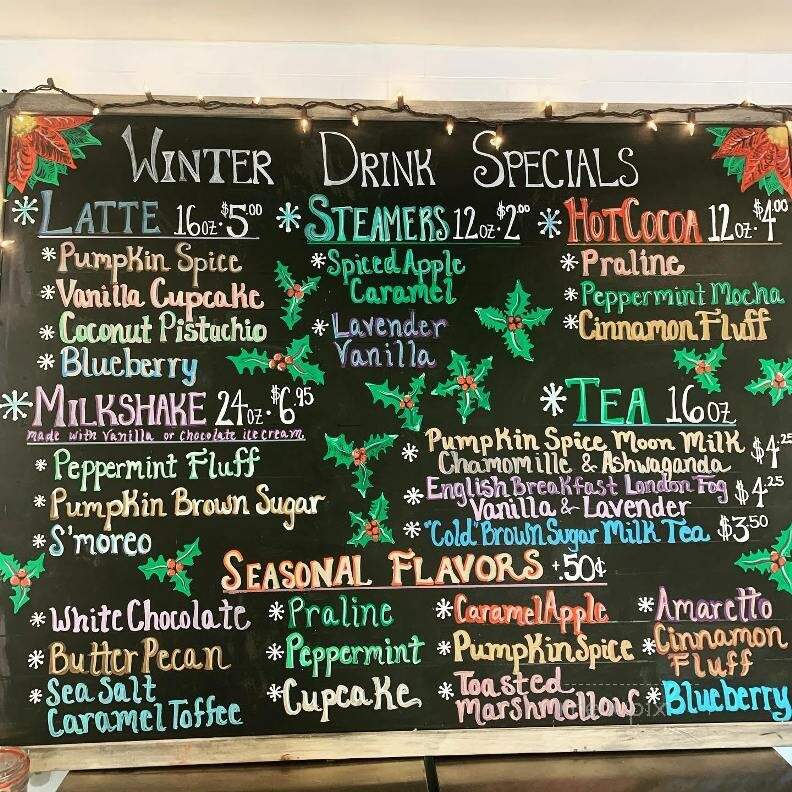 WINTER DRINK SPECIALS
LATTE 16oz. $5.00
Pumpkin Spice
Vanilla Cupcake
Coconut Pistachio
Blueberry
STEAMERS 12oz. $2.00
Spiced Apple
Caramel
Lavender
Vanilla
HOT COCOA 12oz. $4.00
Praline
Peppermint Mocha
Cinnamon Fluff
MILKSHAKE 24oz. $6.95
made with vanilla or chocolate ice cream
Peppermint Fluff
Pumpkin Brown Sugar
S'moreo
TEA 16oz
Pumpkin Spice Moon Milk $4.25
Chamomille & Ashwaganda
English Breakfast London Fog $4.25
Vanilla & Lavender
"Cold" Brown Sugar Milk Tea $3.50
SEASONAL FLAVORS +.50¢
White Chocolate
Butter Pecan
Sea Salt
Caramel Toffee
Praline
Peppermint
Cupcake
Caramel Apple
Pumpkin Spice
Toasted
Marshmellow
Amaretto
Cinnamon
Fluff
Blueberry